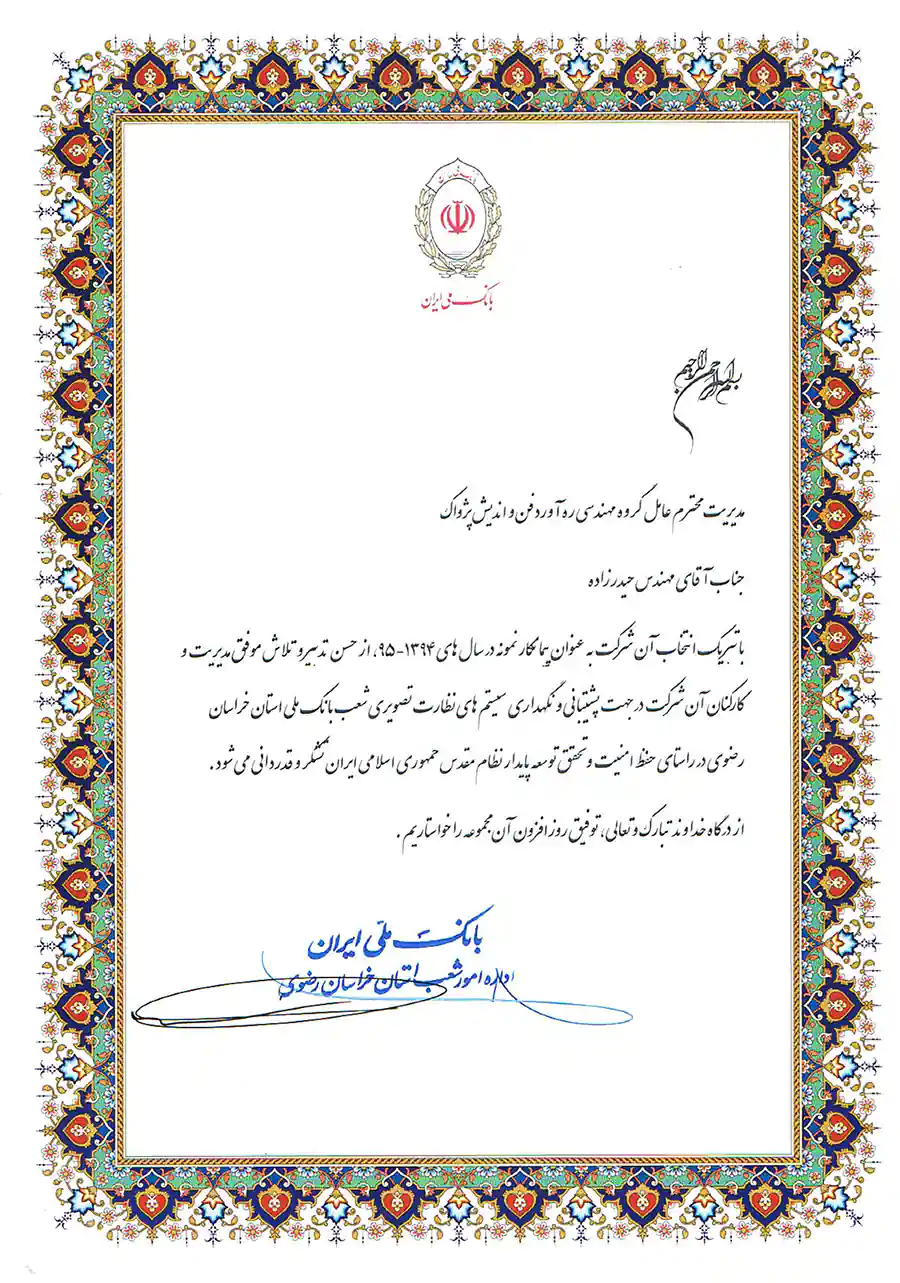 بانک ملی ایران
بسم الله الرحمن الرحیم
مدیریت محترم عامل گروه مهندسی ره آورد فن و اندیش پژواک
جناب آقای مهندس حیدرزاده
با تبریک انتخاب آن شرکت به عنوان پیمانکار نمونه در سال های ۱۳۹۴-۹۵، از حسن تدبیر و تلاش موفق مدیریت و
کارکنان آن شرکت در جهت پشتیبانی و نگهداری سیستم های نظارت تصویری شعب بانک ملی استان خراسان
رضوی در راستای حفظ امنیت و تحقق توسعه پایدار نظام مقدس جمهوری اسلامی ایران تشکر و قدردانی می شود.
از درگاه خداوند تبارک و تعالی، توفیق روز افزون آن مجموعه را خواستاریم.
بانک ملّی ایران
اداره امور شعب استان خراسان رضوی